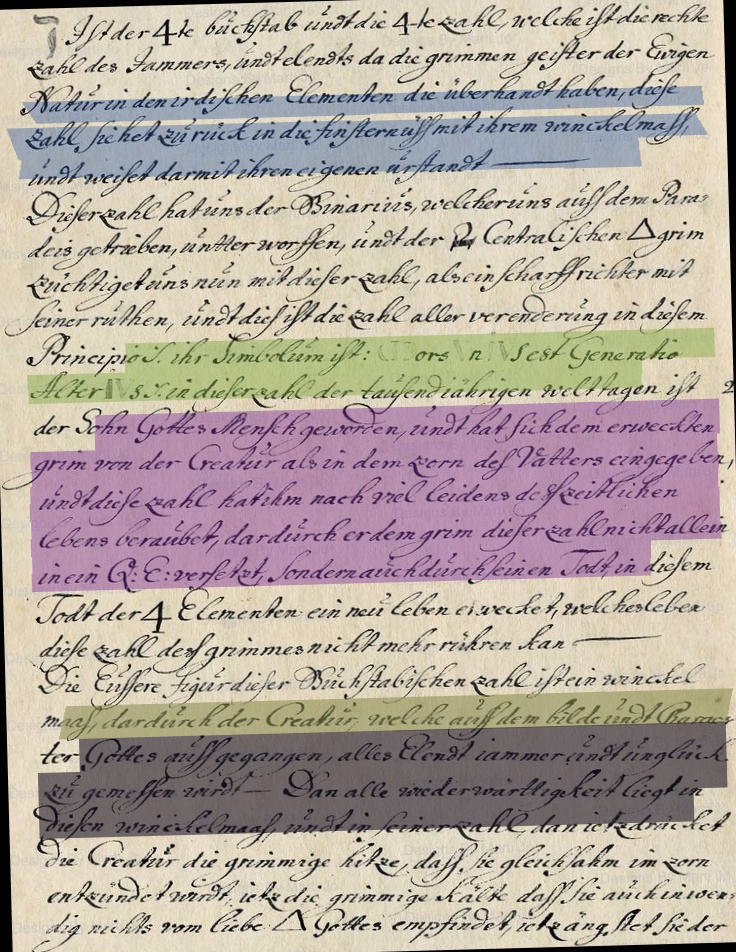 J Ist der 4-te buchstab undt die 4-te zahl, welche ist die rechte
zahl des Jammers, undt elendts da die grimmen geister der Ewigen
Natur in den irdischen Elementen die überhandt haben, diese
zahl siehet zurück in die finsternüss mit ihrem winckelmass,
undt weiset darmit ihren eigenen urstandt
Dieser zahl hat uns der Binarius, welcher uns auss dem Para-
deis getrieben, untter worffen, undt der Centralischen △ grim
züchtiget uns nun mit dieser zahl, als ein scharffrichter mit
seiner ruthen, undt dies ist die zahl aller verenderung in diesem
Principio S. ihr Simbolum ist: Mors Vn IVS est Generatio
Alter IVS S. in dieser zahl der tausendt jährigen welt tagen ist 2
der Sohn Gottes Mensch geworden, undt hat sich dem erweckten
grim von der Creatur als in dem zorn dess Vatters eingegeben,
undt diese zahl hat ihm nach viel leidens dess zeitlichen
lebens beraubet, dardurch er dem grim dieser zahl nicht allein
in ein Q: E: versetzt, sondern auch durch seinen Todt, in diesem
Todt der 4 Elementen ein neu leben erwecket, welches leben
diese zahl dess grimmes nicht mehr rühren kan
Die Eussere figur dieser Buchstabischen zahl ist ein winckel
maas, dardurch der Creatur, welche auss dem bilde undt Charac-
ter Gottes aussgegangen, alles Elendt iammer undt unglück
zu gemessen wirdt — Dan alle wiederwärttigkeit liegt in
diesen winckelmaas, undt in seiner zahl, dan ietz drücket
die Creatur die grimmige hitze, dass sie gleichsahm im zorn
entzündet wirdt, ietz die grimmige Kälte dass sie auch inwen-
dig nichts vom liebe △ Gottes empfindet, ietz ängstet sie der